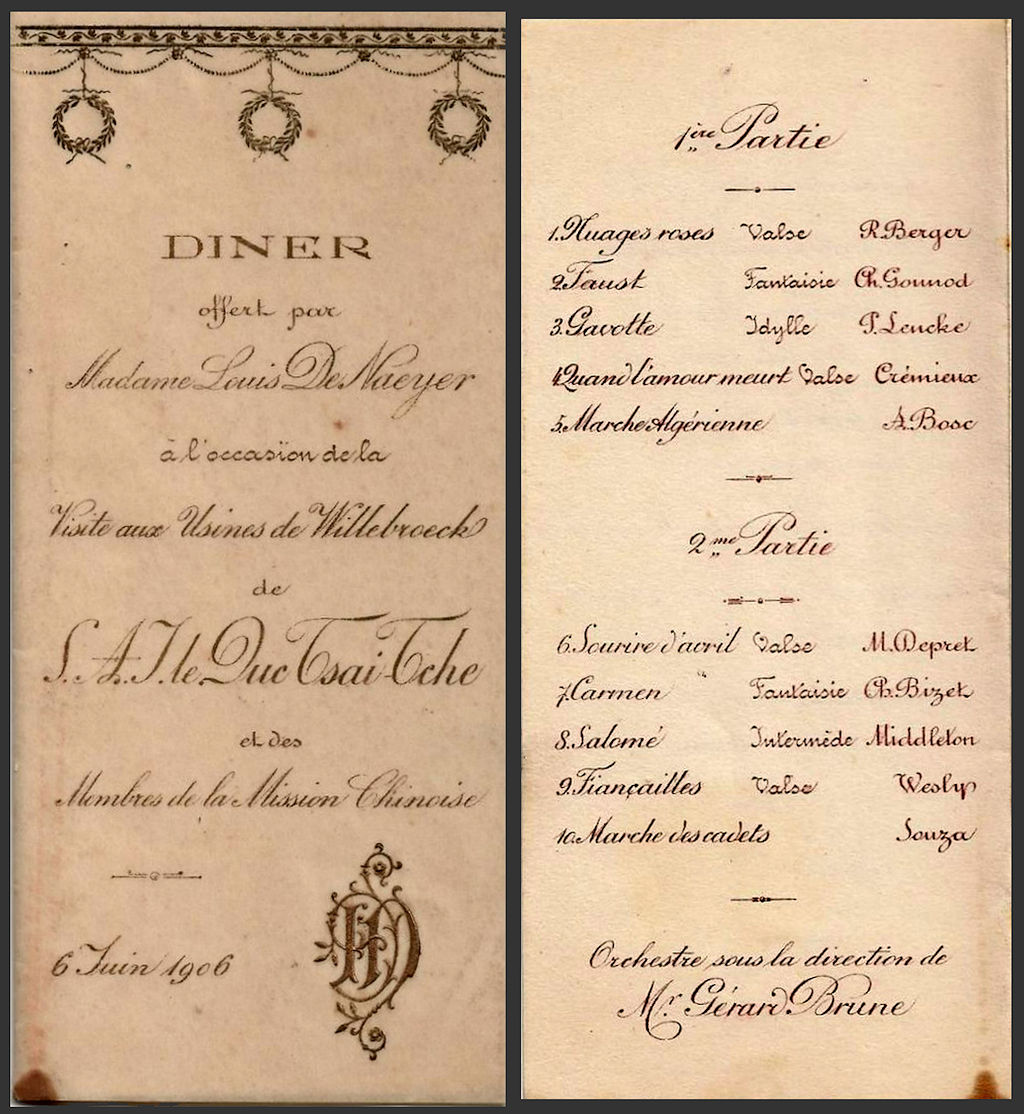 DINER
offert par
Madame Louis De Naeyer
à l'occasion de la
Visite aux Usines de Willebroeck
de
S. A. I. le Duc Tsai-Tche
et des
Membres de la Mission Chinoise
6 Juin 1906
1ère Partie
1. Nuages roses Valse R. Berger
2. Faust Fantaisie Ch. Gounod
3. Gavotte Idylle P. Lencke
4. Quand l'amour meurt Valse Crémieux
5. Marche Algérienne A. Bosc
2me Partie
6. Sourire d'avril Valse M. Depret
7. Carmen Fantaisie Ch. Bizet
8. Salomé Intermède Middleton
9. Fiançailles Valse Wesly
10. Marche des cadets Souza
Orchestre sous la direction de
Mr. Gérard Brune